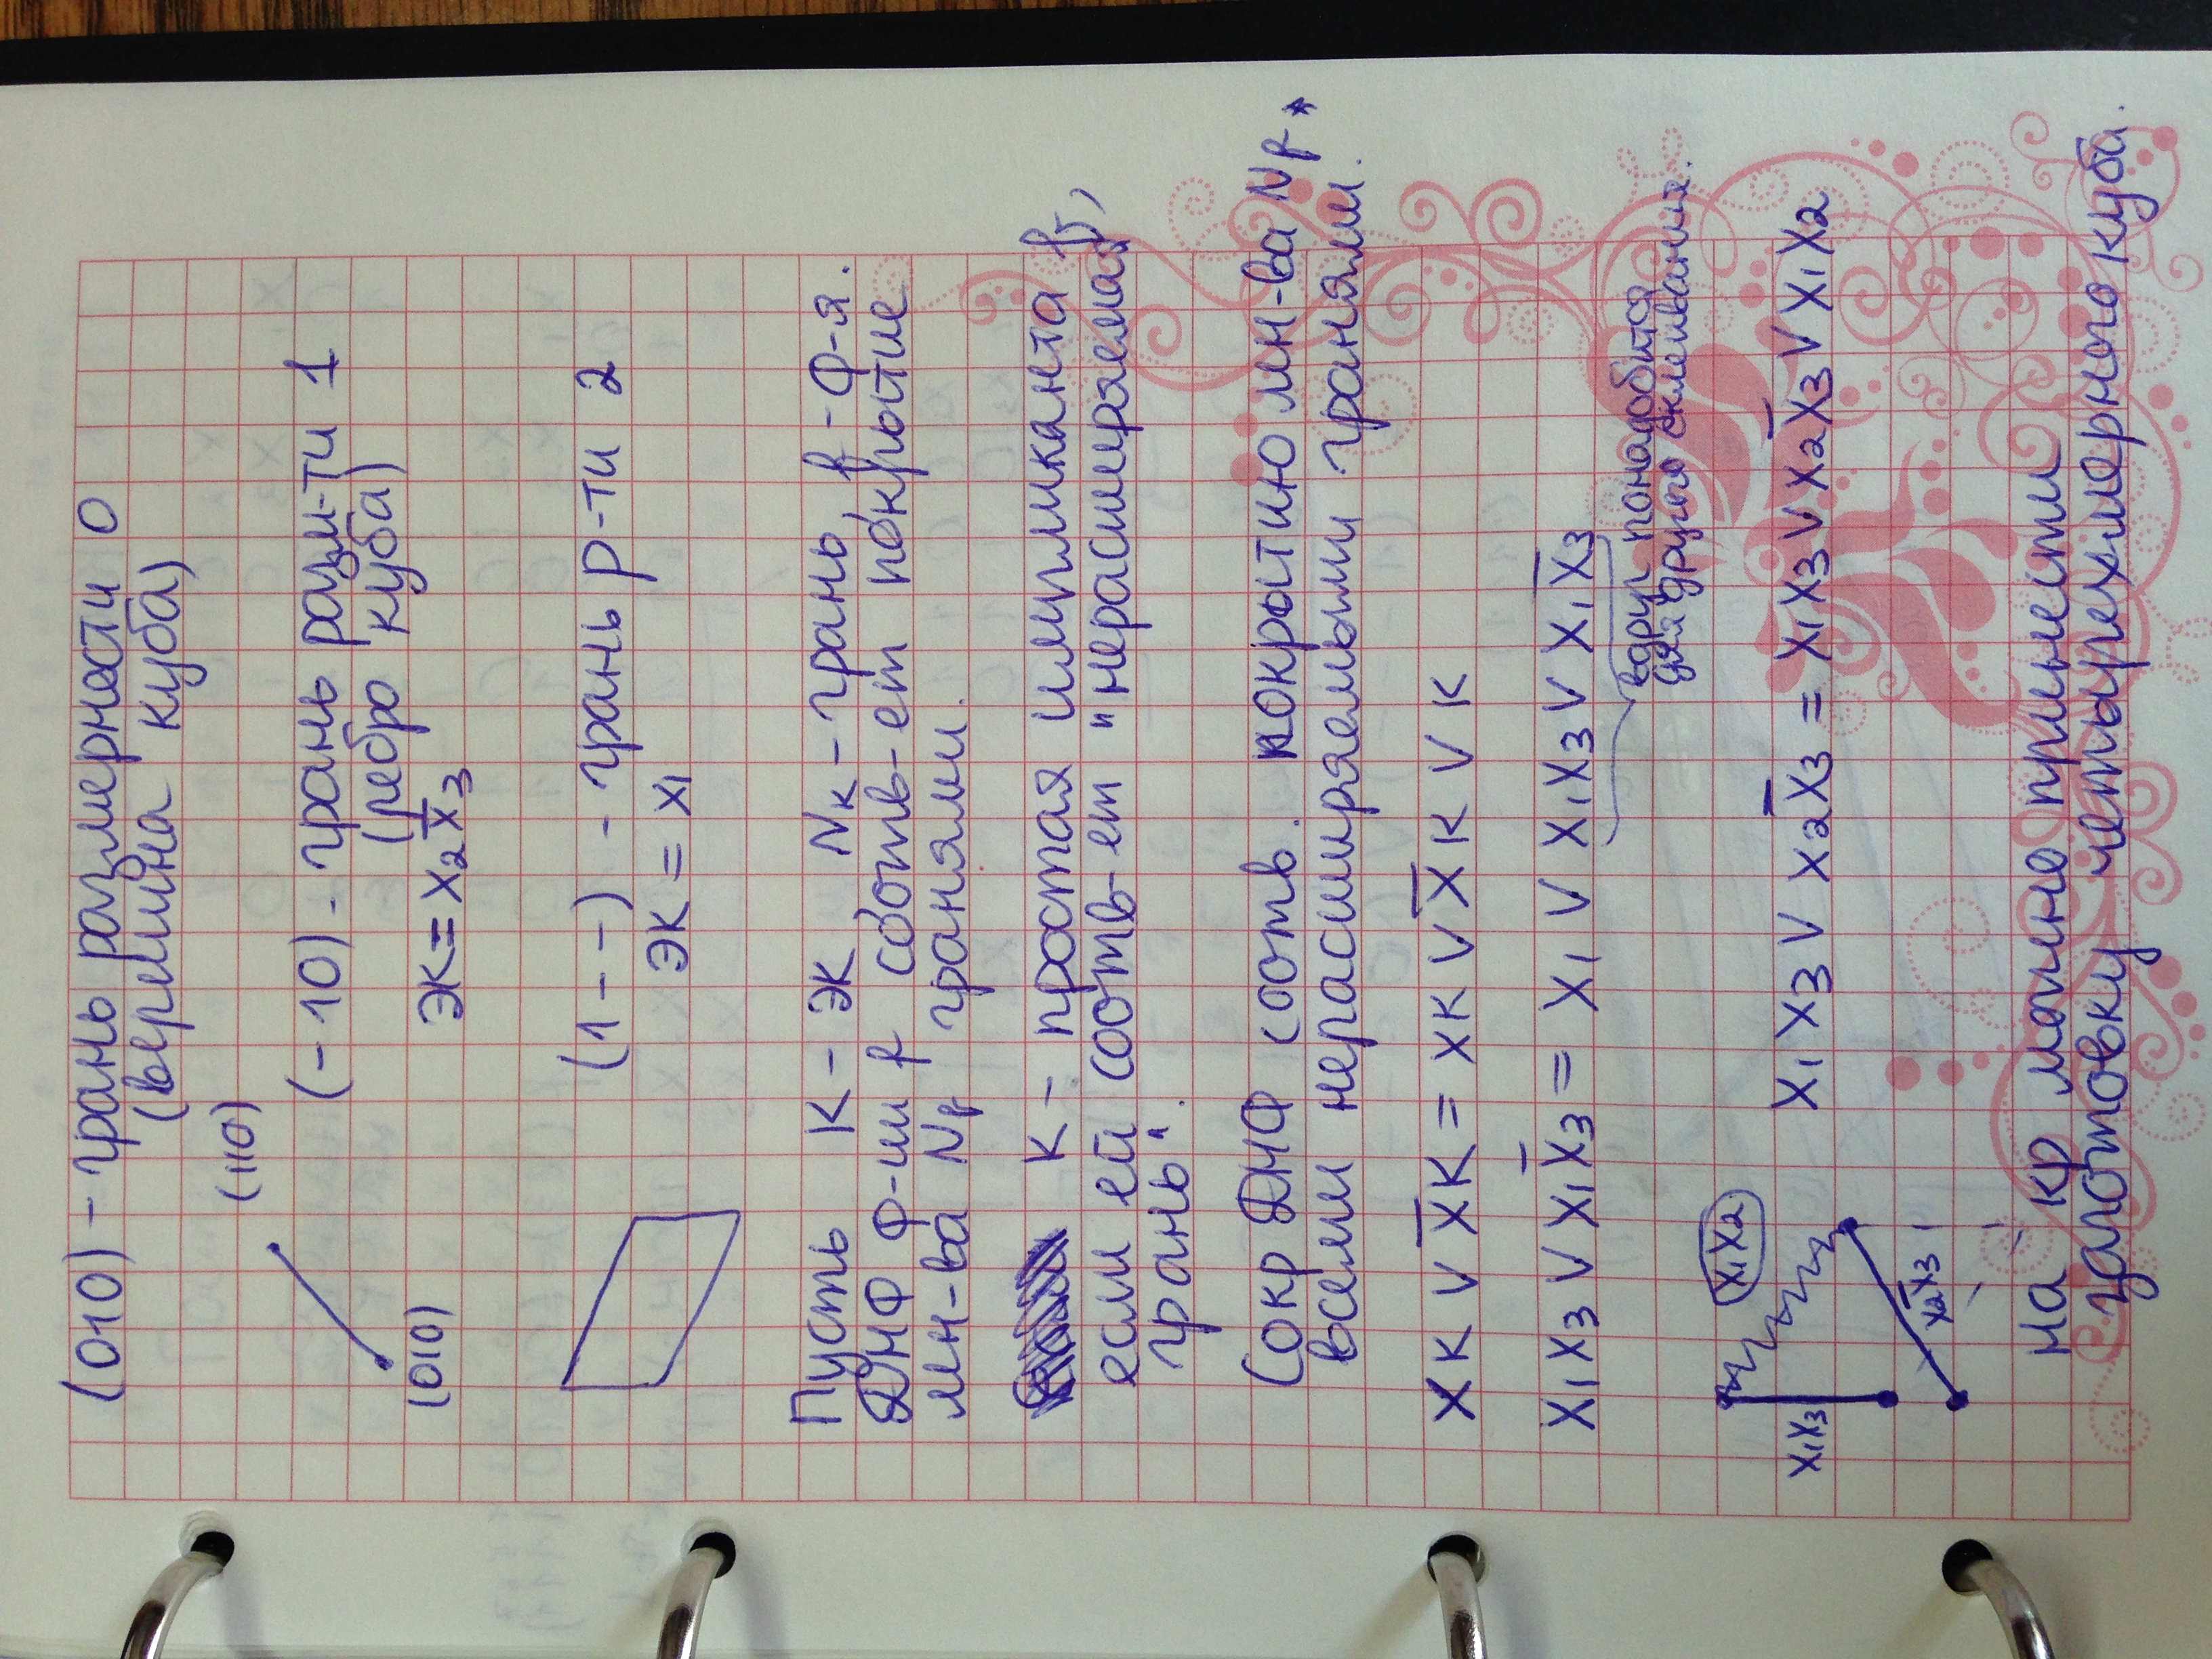 (010) - грань размерности 0
(вершина куба)
(110)
(-10) - грань разм-ти 1
(ребро куба)
(010)
ЭК = x₂x̅₃
(1--) - грань р-ти 2
ЭК = x₁
Пусть K - ЭК Nₖ - грань f - ф-я.
ДНФ ф-ии f соотв-ет покрытие
мн-ва N_f гранями.
K - простая импликанта f,
если ей соотв-ет "нерасширяемая
грань".
Сокр ДНФ соотв. покрытию мн-ва N_f *
всеми нерасширяемыми гранями.
xK ∨ x̅K = xK ∨ x̅K ∨ K
x₁x₃ ∨ x₁x̅₃ = x₁ ∨ x₁x₃ ∨ x₁x̅₃
вдруг понадобится
для другого склеивания.
x₁x₃ ∨ x₂x̅₃ = x₁x₃ ∨ x₂x̅₃ ∨ x₁x₂
x₁x₂
x₁x₃
x₂x̅₃
на кр можно принести
заготовку четырехмерного куба.